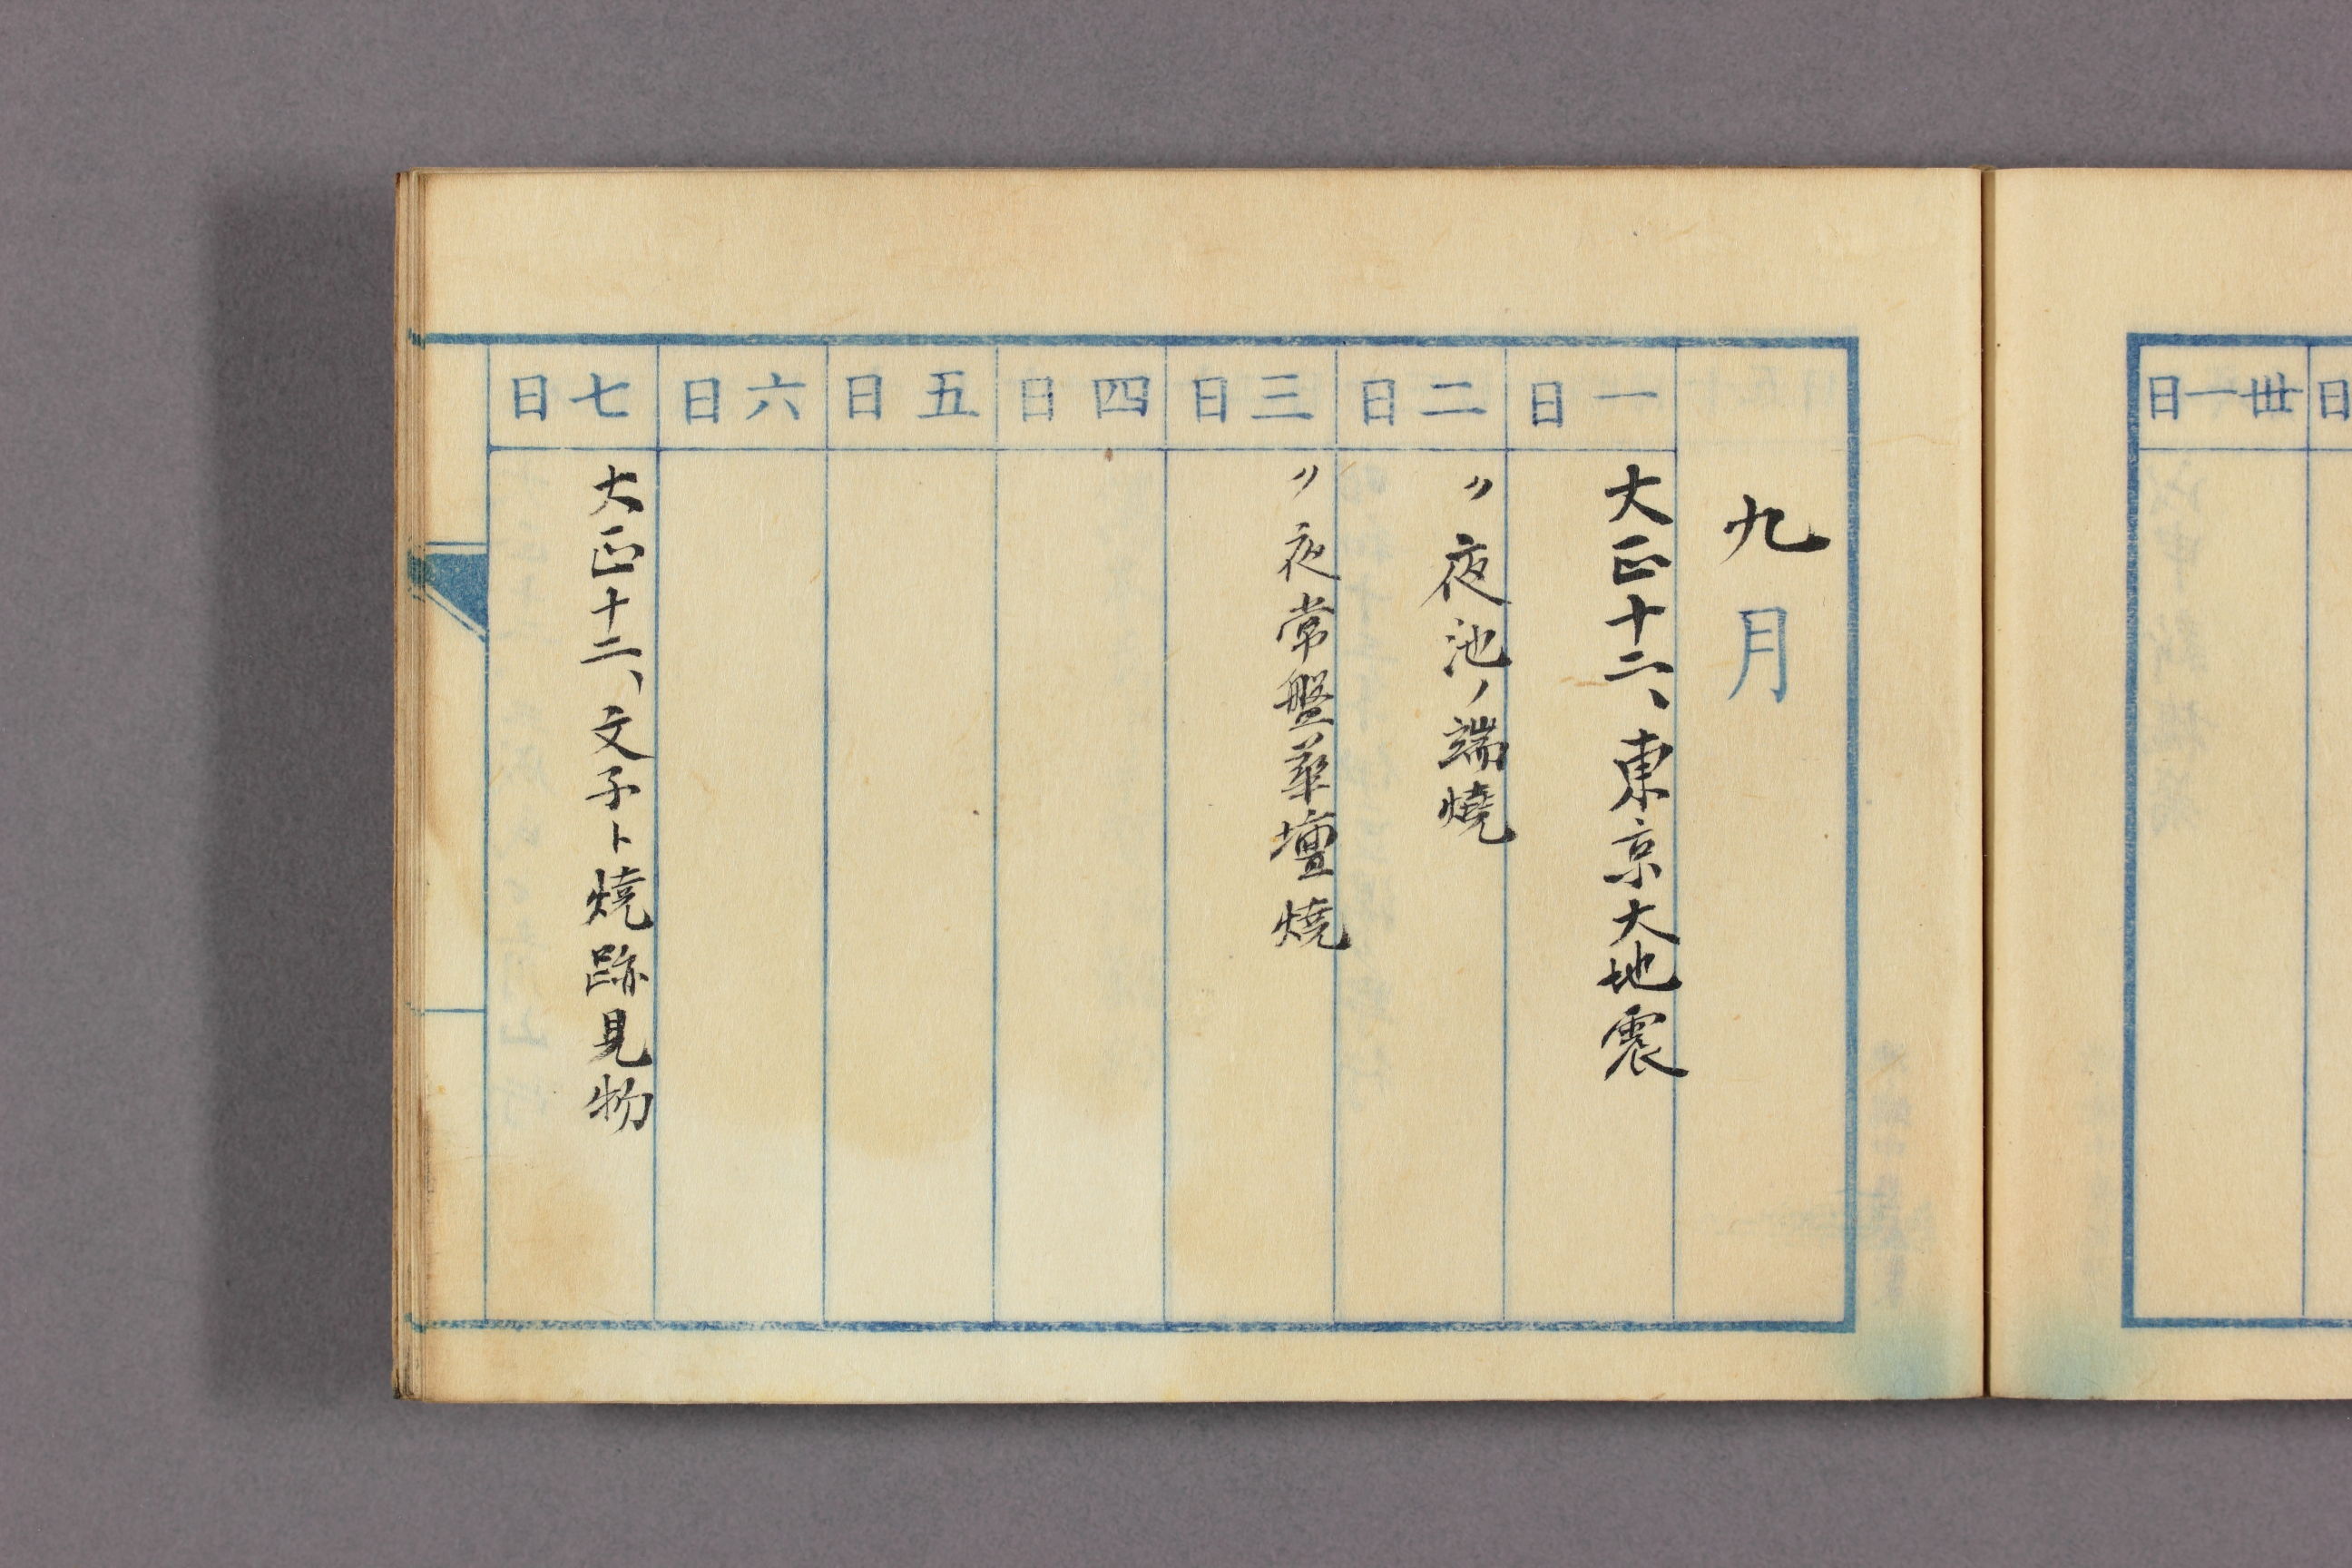 日
丗一日
九月
一日
大正十二、東京大地震
二日
〃夜池ノ端燒
三日
〃夜常盤華壇燒
四日
五日
六日
七日
大正十二、文子ト燒跡見物